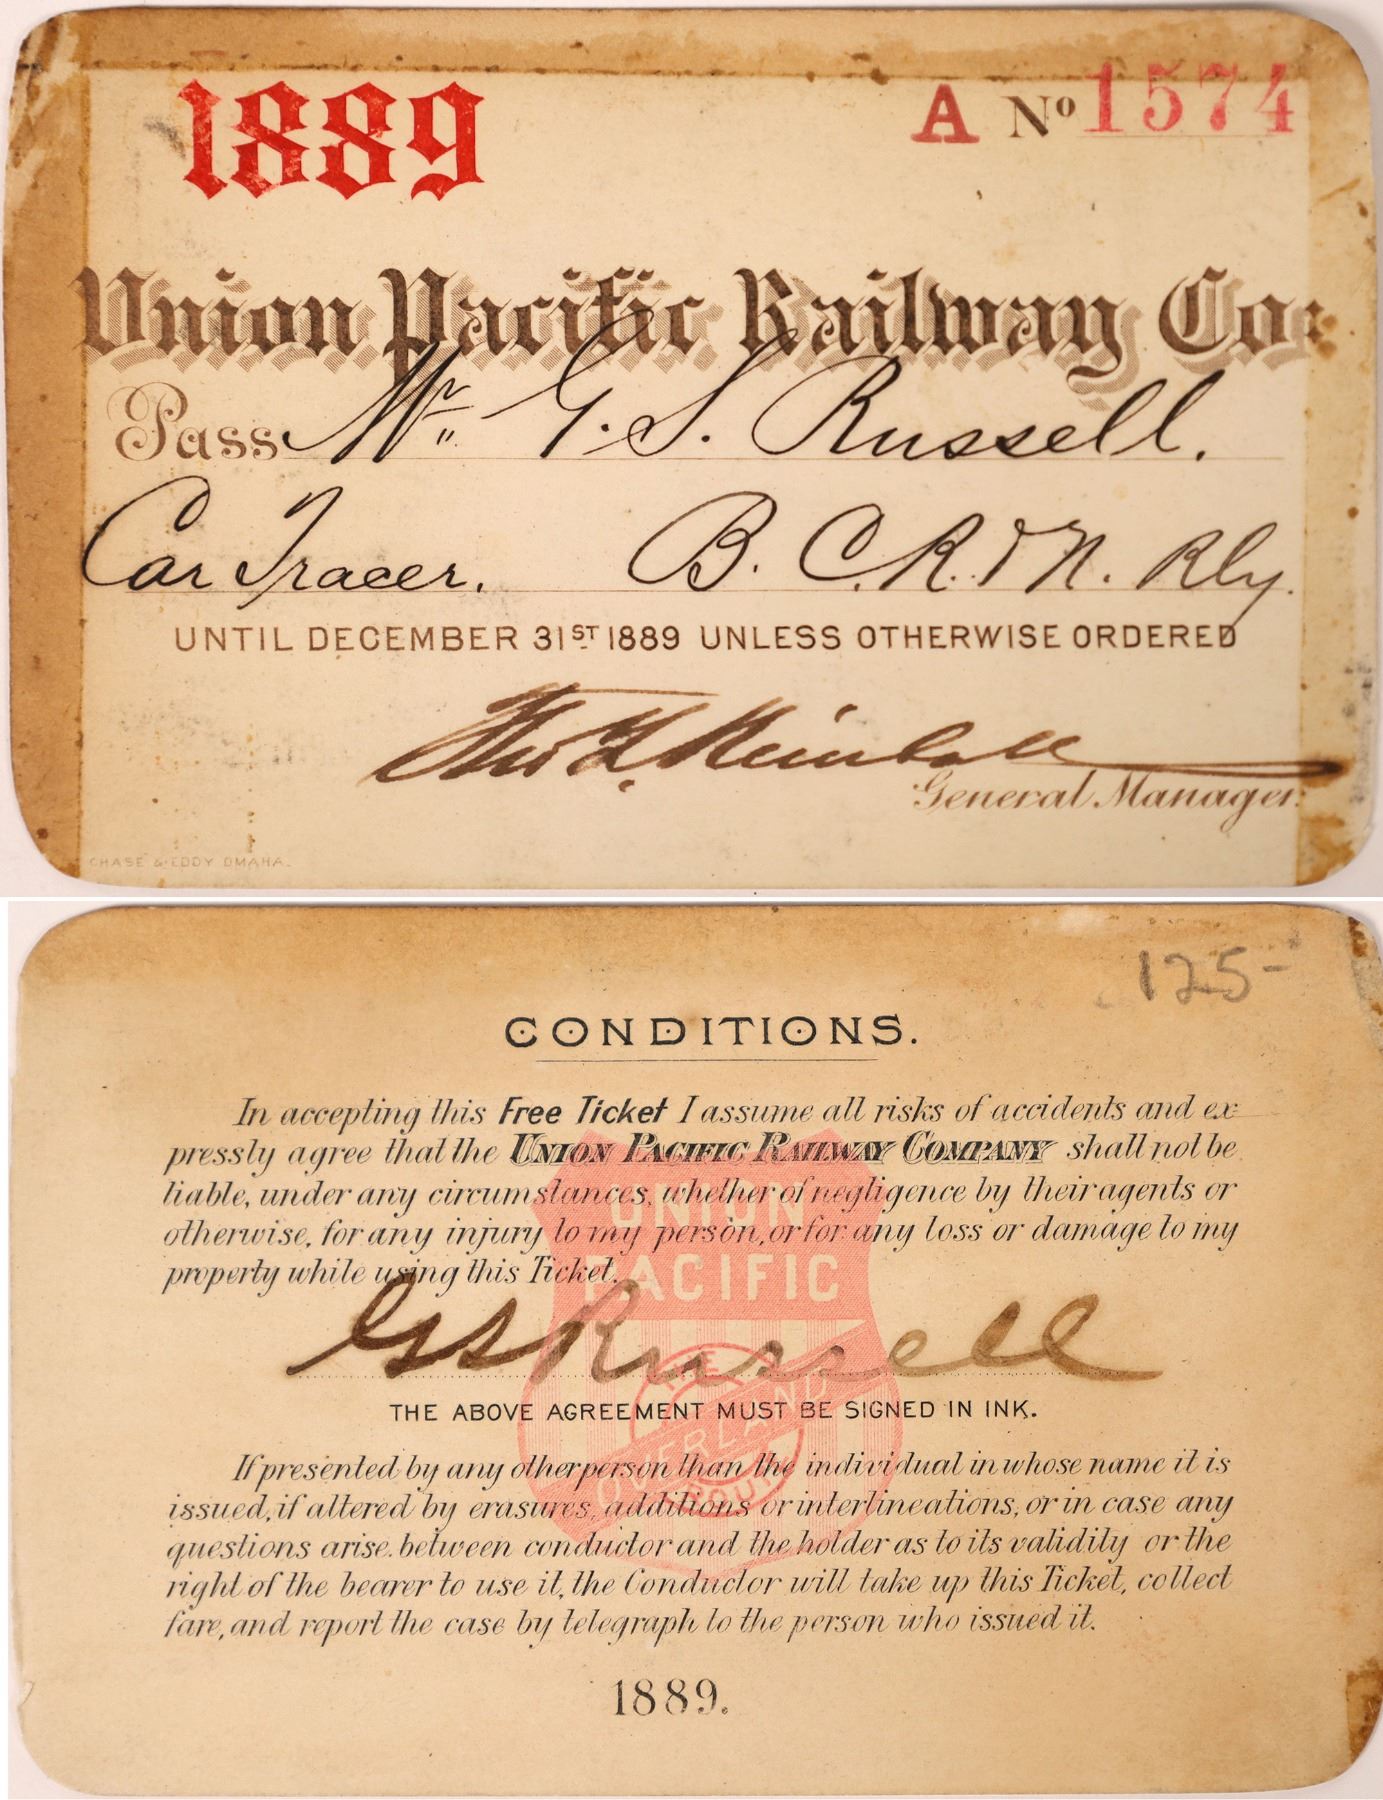 1889
A No 1574
Union Pacific Railway Co:
Pass Mr. G. S. Russell.
Car Tracer. B. C. R. & N. Rly.
UNTIL DECEMBER 31ST 1889 UNLESS OTHERWISE ORDERED
Tho L. Kimball
General Manager.
CHASE & EDDY OMAHA.
125-
CONDITIONS.
In accepting this Free Ticket I assume all risks of accidents and ex-
pressly agree that the UNION PACIFIC RAILWAY COMPANY shall not be
liable, under any circumstances, whether of negligence by their agents or
otherwise, for any injury to my person, or for any loss or damage to my
property while using this Ticket.
UNION
PACIFIC
GS Russell
THE
OVERLAND
ROUTE
THE ABOVE AGREEMENT MUST BE SIGNED IN INK.
If presented by any other person than the individual in whose name it is
issued, if altered by erasures, additions or interlineations, or in case any
questions arise. between conductor and the holder as to its validity or the
right of the bearer to use it, the Conductor will take up this Ticket, collect
fare, and report the case by telegraph to the person who issued it.
1889.